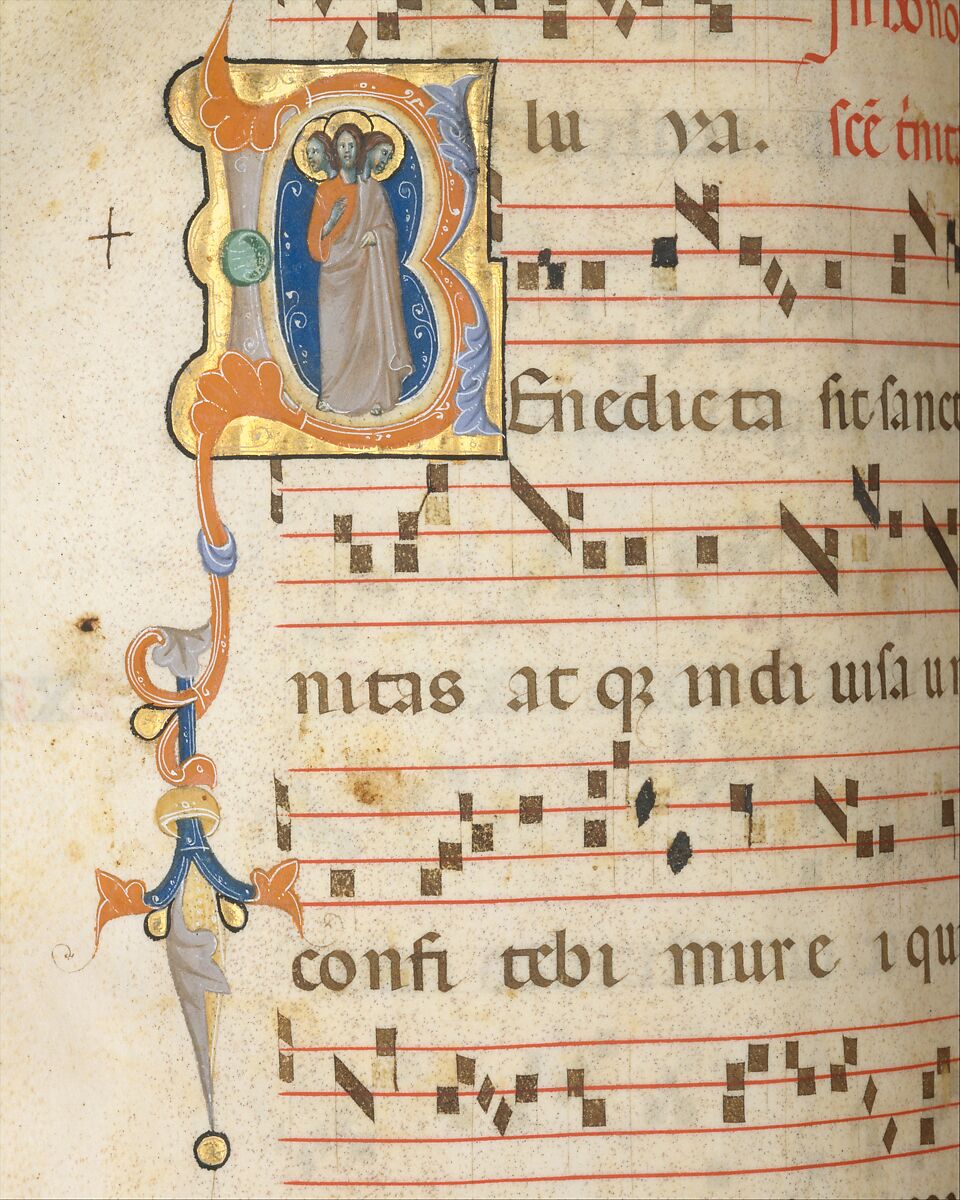 lu ya. scē t̄nit
BEnedicta sit sanct
nitas at qꝫ indi uisa un
confi tebi mur e i qu